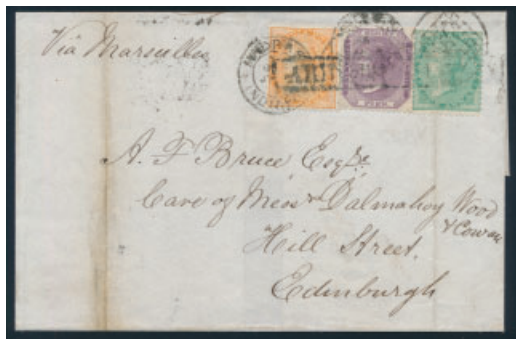 Via Marseilles
A. F Bruce Esqre
Care of Messrs Dalmahoy Wood
& Cowan
Hill Street.
Edinburgh